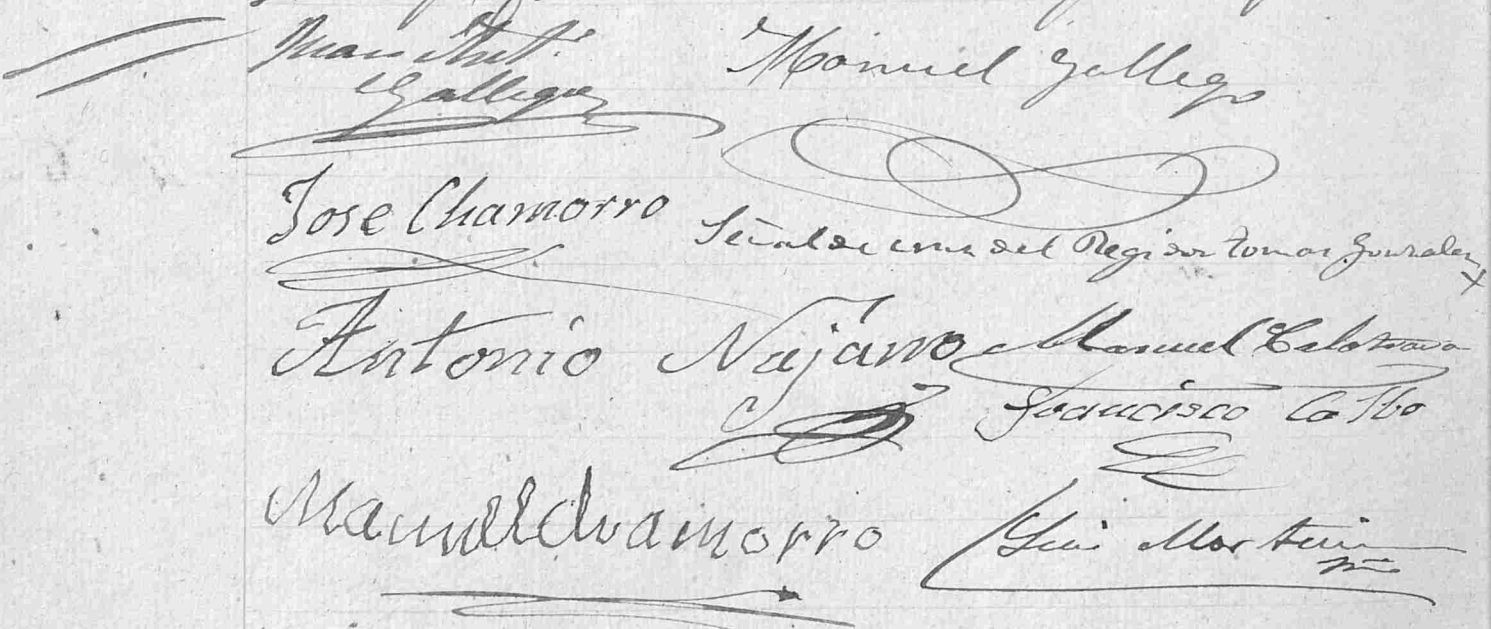 Juan Ant.º
Gallego
Manuel Gallego
Jose Chamorro
Señal de cruz del Regidor Tomas Gonzalez
Antonio Najarro
Manuel Calatrava
Francisco Calbo
Manuel Chamorro
Luis Martin